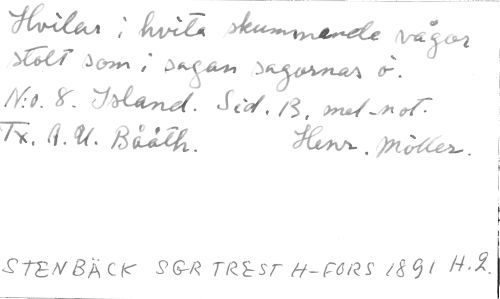 Hvilar i hvita skummande vågor
stolt som i sagan sagornas ö.
N:o. 8. Island. Sid. 13. mel-not.
Tx. A. U. Bååth. Henr. Möller.
STENBÄCK SGR TREST H-FORS 1891 H.2.